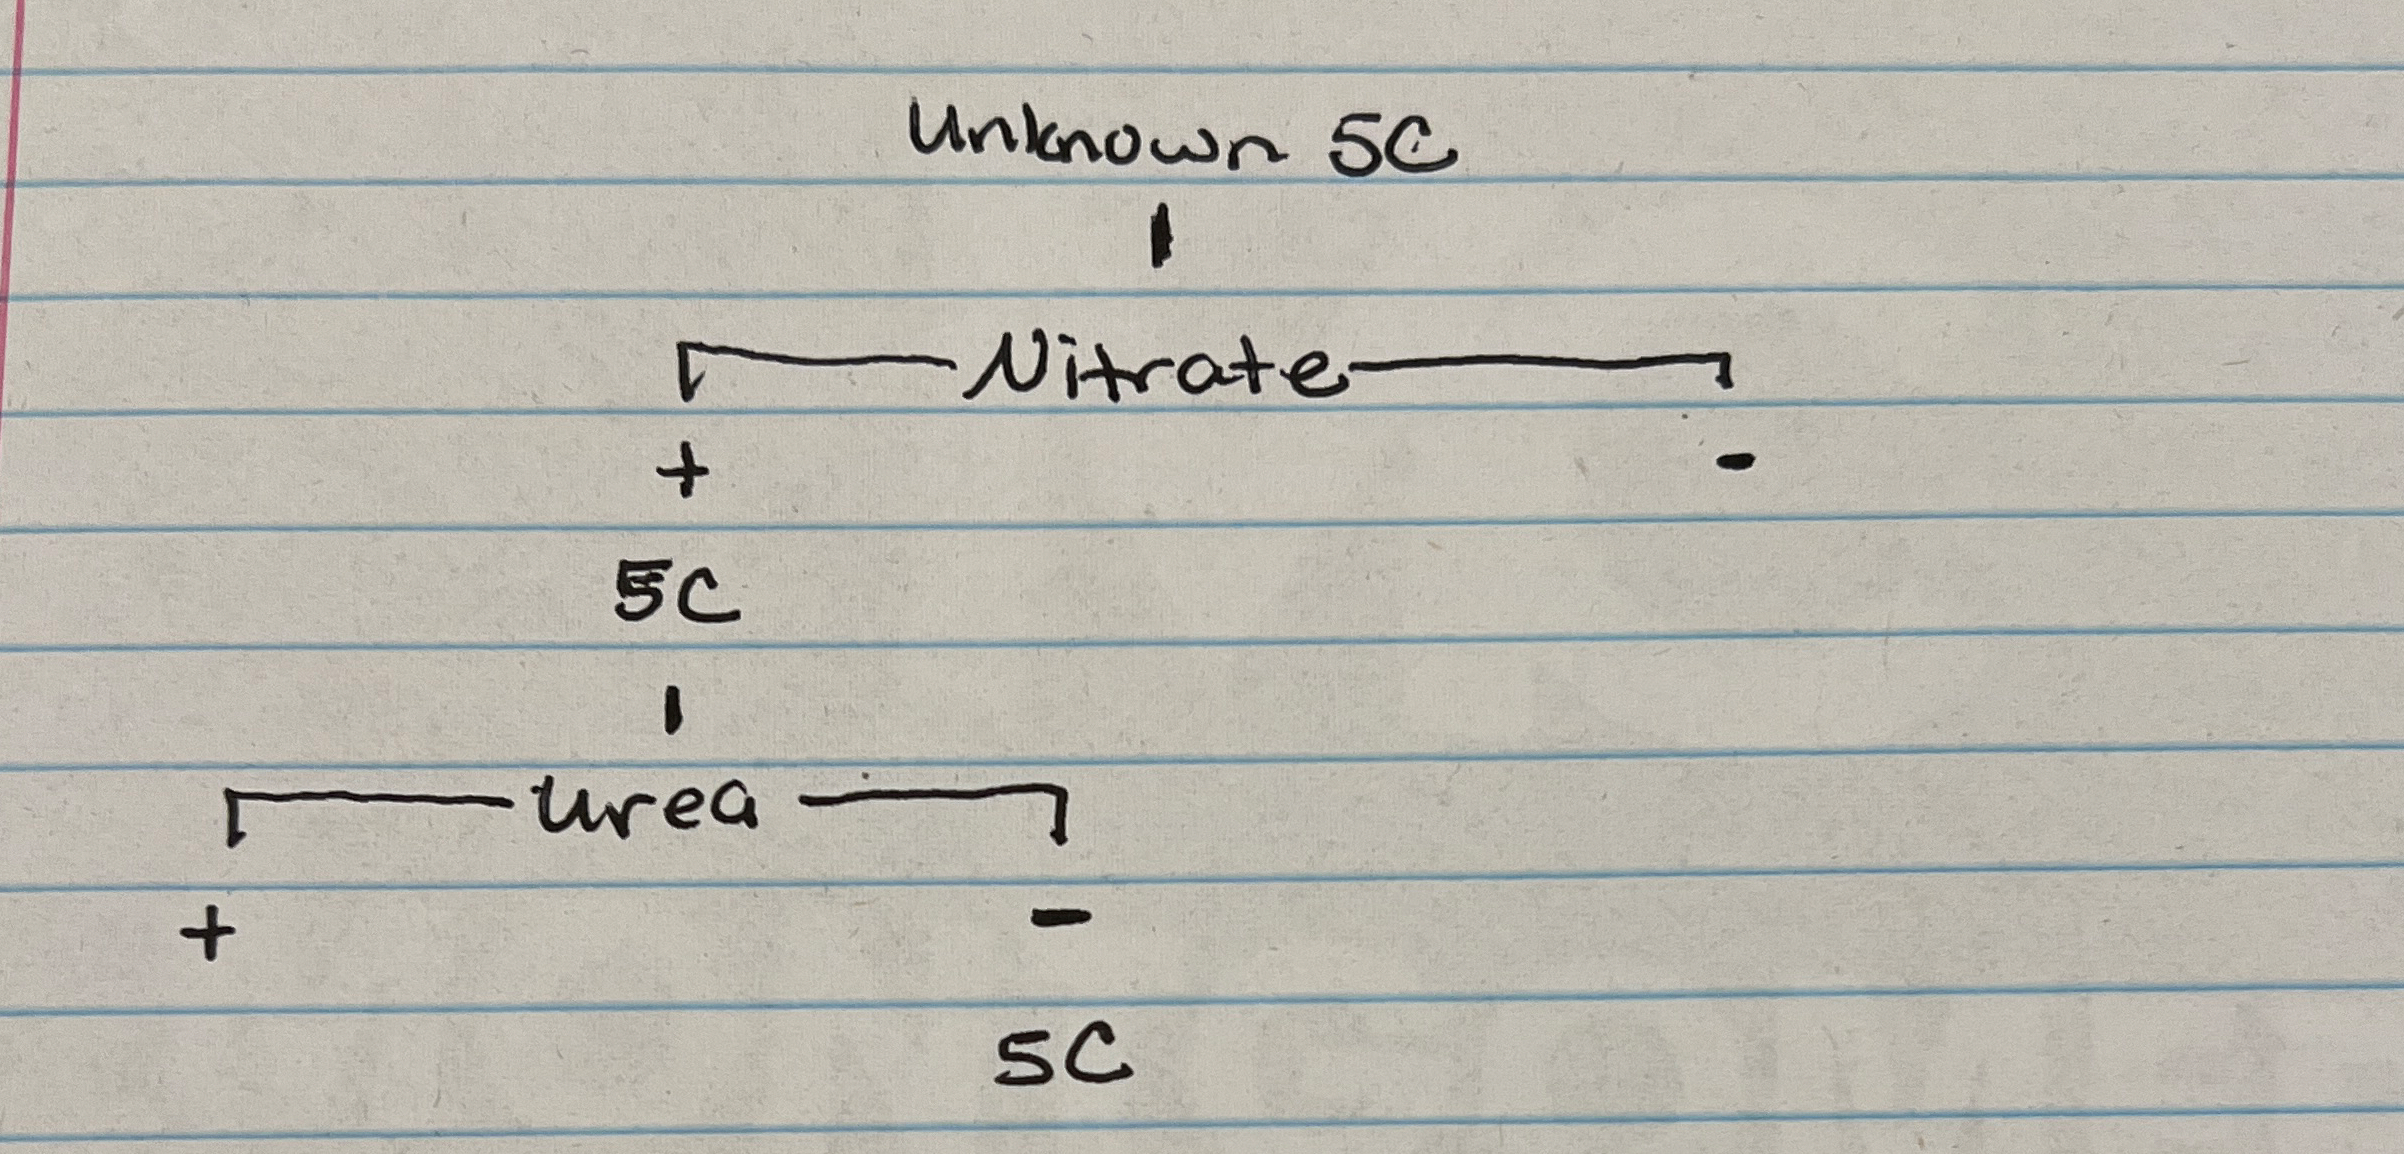 Unknown 5C
Nitrate
+ -
5C
Urea
+ -
5C